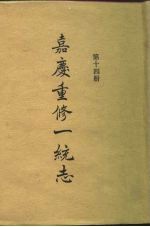 第十四冊
嘉慶重修一統志